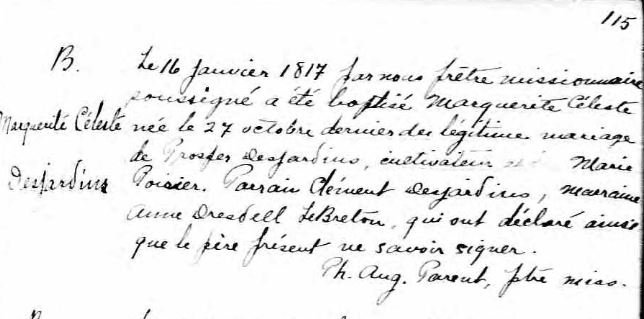 115
B. Le 16 Janvier 1817 par nous prêtre missionnaire
soussigné a été baptisé Marguerite Céleste
Marguerite Céleste née le 27 octobre dernier du légitime mariage
de Prosper Desjardins, cultivateur Marie
Desjardins Poirier. Parrain Clément Desjardins, marraine
Anne Dresdell LeBreton, qui ont déclaré ainsi
que le père présent ne savoir signer.
Ph. Aug. Parent, ptre miss.